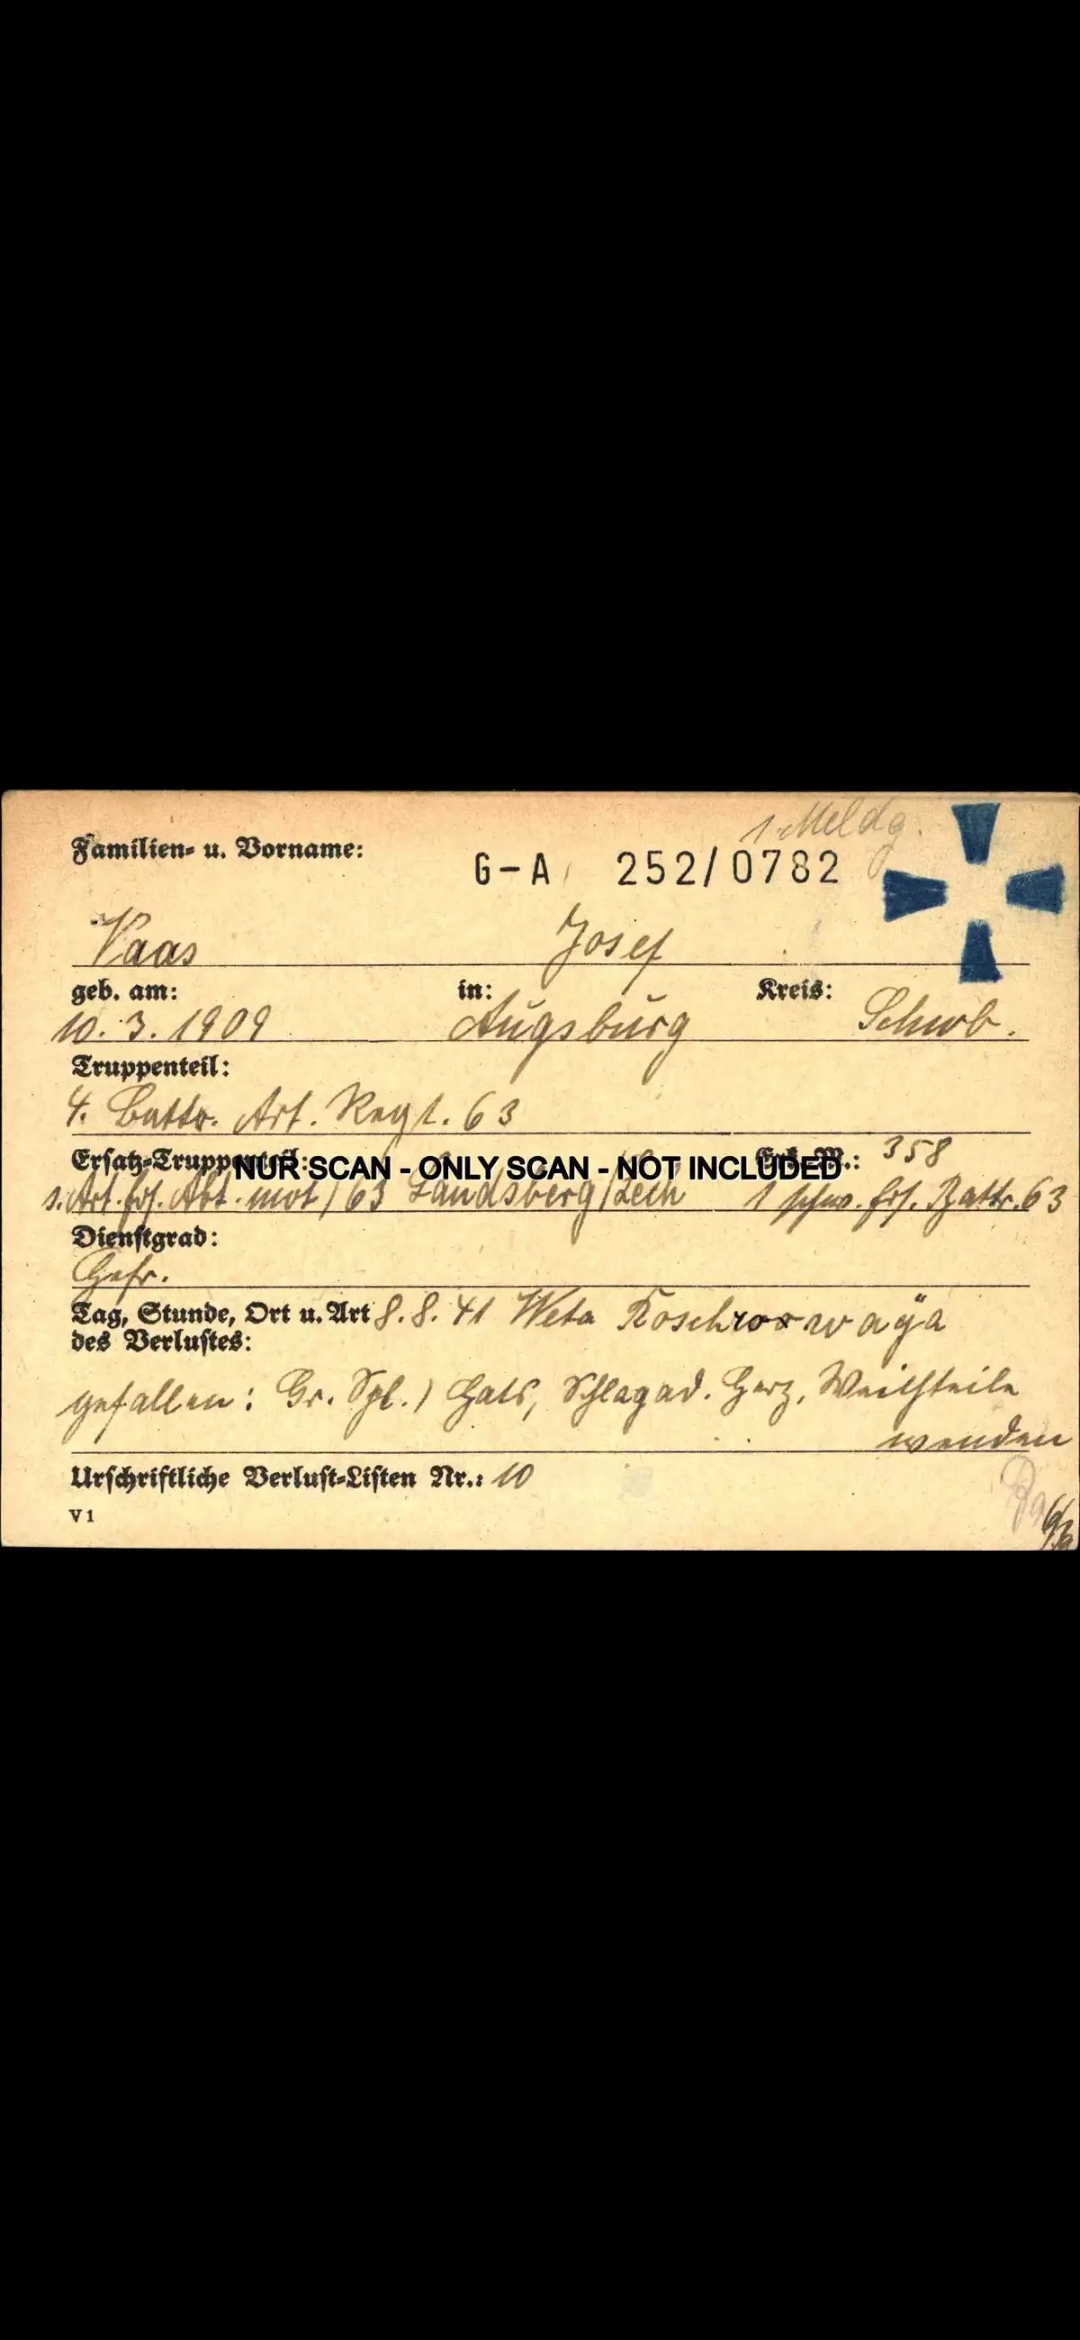 1. Meldg.
Familien- u. Vorname:
G-A 252/0782
Vaas Josef
geb. am: in: Kreis:
10.3.1909 Augsburg Schwb.
Truppenteil:
4. Battr. Art. Regt. 63
Ersatz-Truppenteil: 358
NUR SCAN - ONLY SCAN - NOT INCLUDED
s. Art. Ers. Abt. mot / 63 Landsberg/Lech 1 schw. Ers. Battr. 63
Dienstgrad:
Gefr.
Tag, Stunde, Ort u. Art 8.8.41 Weta
des Verlustes:
gefallen: Gr. Spl.) Hals, Schlagad. Herz, Weichteile
wenden
Urschriftliche Verlust-Listen Nr.: 10
V 1